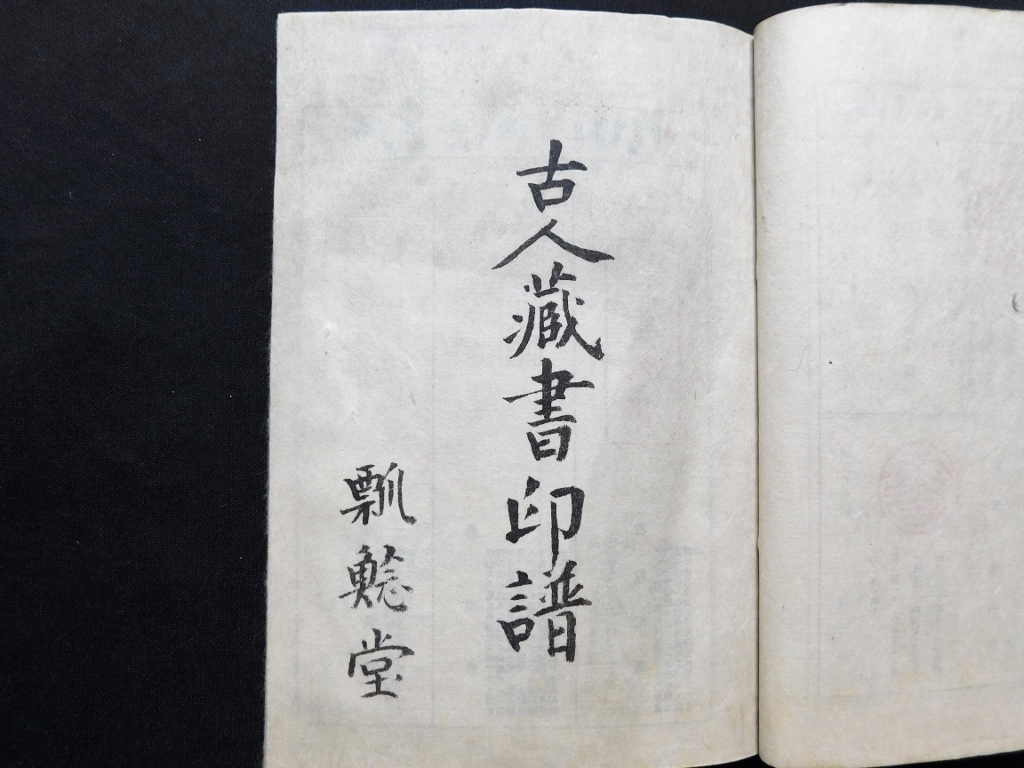 古人藏書印譜
瓢鯰堂